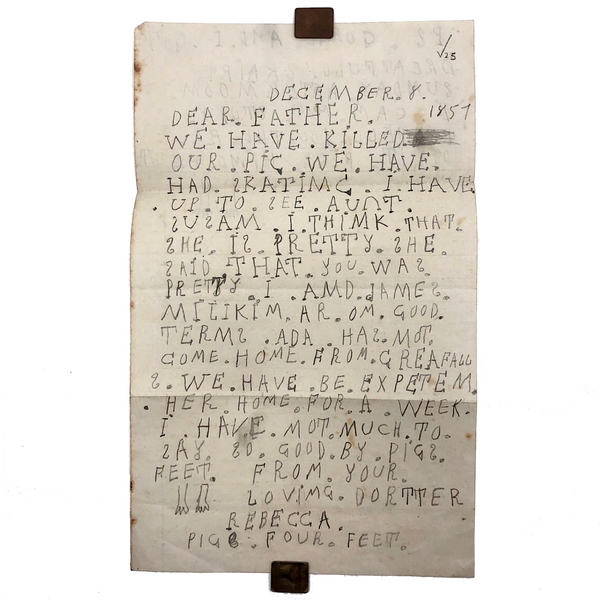 √25
DECEMBER. 8.
DEAR. FATHER. 1857
WE. HAVE. KILLED.
OUR. PIG. WE. HAVE.
HAD. SKATIMG. I. HAVE
. UP. TO. SEE. AUNT.
SUSAM. I. THIMK. THAT.
SHE. IS. PRETTY. SHE.
SAID THAT. YOU. WAS.
PRETTY. I. AMD. JAMES.
MILIKIM. AR. OM. GOOD.
TERMS. ADA. HAS. MOT.
COME. HOME. FROM. GREAFALL
S. WE. HAVE. BE. EXPETEM.
. HER. HOME. FOR. A. WEEK.
I. HAVE. MOT. MUCH. TO.
SAY. SO. GOOD. BY. PIGS.
FEET. FROM. YOUR.
LOVIMG. DORTTER
REBECCA.
PIGS. FOUR. FEET.